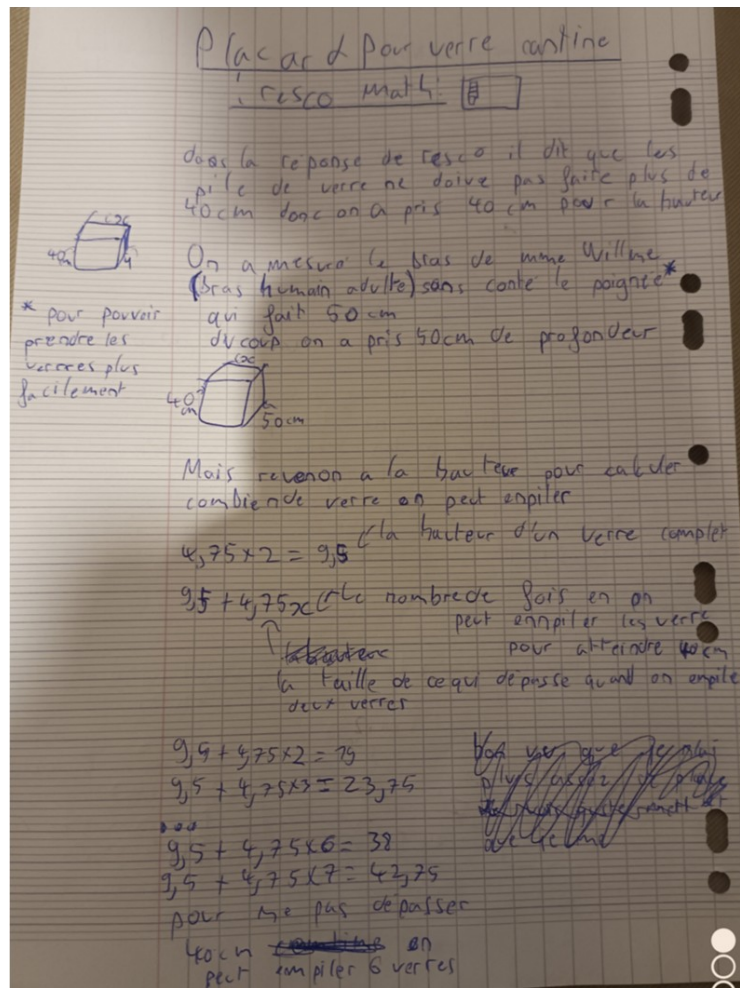 Placard pour verre cantine
: resco math :
dans la reponse de resco il dit que les
pile de verre ne doive pas faire plus de
40cm donc on a pris 40 cm pour la hauteur
40cm
On a mesuré le bras de mme Willme
(bras humain adulte) sans conté le poignée*
qui fait 50 cm
du coup on a pris 50cm de profondeur
* pour pouvoir
prendre les
verres plus
facilement
40
cm
50cm
Mais revenon a la hauteur pour calculer
combien de verre on peut enpiler
4,75x2 = 9,5 la hauteur d'un verre complet
9,5 + 4,75x Le nombre de fois en on
peut ennpiler les verre
pour atteindre 40cm
la taille de ce qui dépasse quand on empile
deux verres
9,5 + 4,75x2 = 19
9,5 + 4,75x3 = 23,75
...
9,5 + 4,75x6 = 38
9,5 + 4,75x7 = 42,75
pour ne pas dépasser
40cm on
peut empiler 6 verres